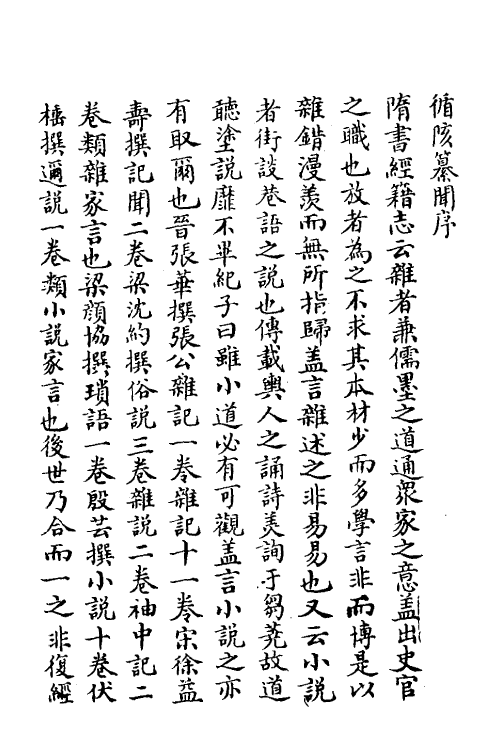 循陔纂聞序
隋書經籍志云雜者兼儒墨之道通眾家之意盖出史官
之職也放者為之不求其本材少而多學言非而博是以
雜錯漫羨而無所指歸盖言雜述之非易易也又云小説
者街談巷語之説也傳載輿人之誦詩美詢于芻蕘故道
聽塗説靡不畢紀子曰雖小道必有可觀盖言小説之亦
有取爾也晉張華撰張公雜記一卷雜記十一卷宋徐益
壽撰記聞二卷梁沈約撰俗説三卷雜説二卷袖中記二
卷類雜家言也梁顔協撰瑣語一卷殷芸撰小説十卷伏
梽撰邇説一卷類小説家言也後世乃合而一之非復經